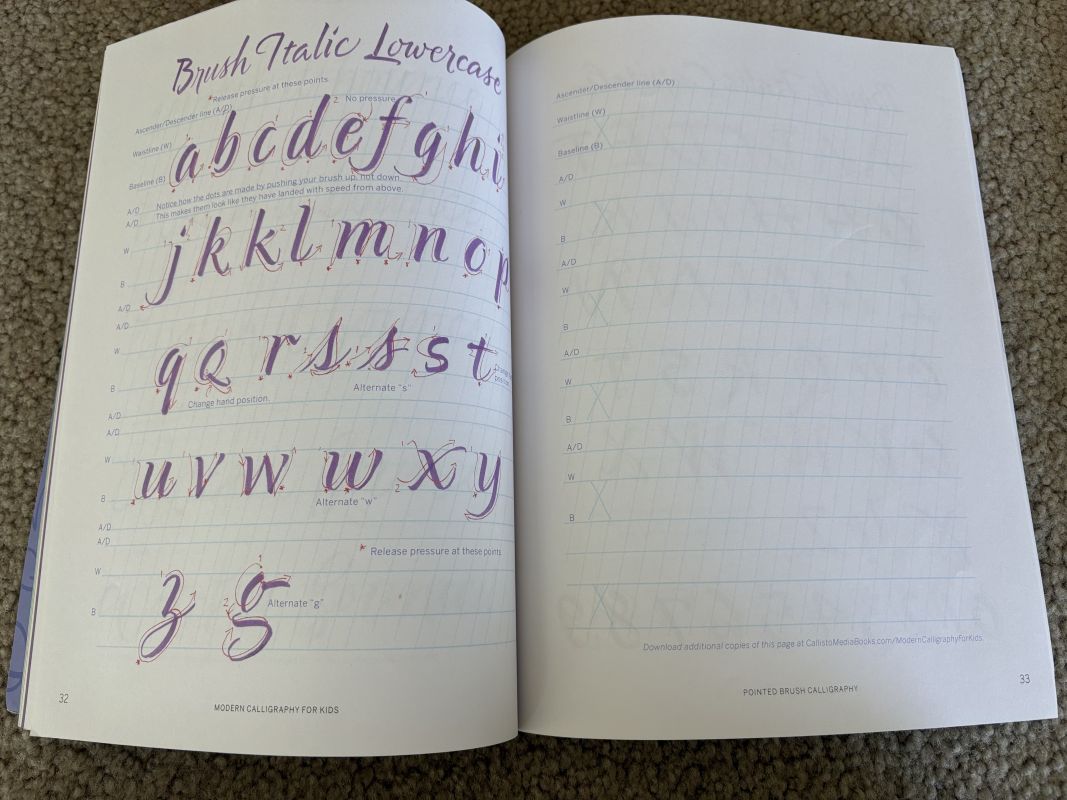 Brush Italic Lowercase
*Release pressure at these points.
Ascender/Descender line (A/D)
2 No pressure
Waistline (W)
a b c d e f g h i
Baseline (B)
Notice how the dots are made by pushing your brush up, not down.
This makes them look like they have landed with speed from above.
A/D
A/D
W
j k k l m n o p
B
A/D
A/D
W
q q r s s s t
Change hand position.
B
Alternate "s"
Change hand position.
A/D
A/D
W
u v w w x y
B
Alternate "w"
A/D
A/D
* Release pressure at these points.
W
z g
Alternate "g"
B
32
MODERN CALLIGRAPHY FOR KIDS
Ascender/Descender line (A/D)
Waistline (W)
X
Baseline (B)
A/D
W
X
B
A/D
W
X
B
A/D
W
X
B
A/D
W
X
B
X
Download additional copies of this page at CallistoMediaBooks.com/ModernCalligraphyForKids.
POINTED BRUSH CALLIGRAPHY
33